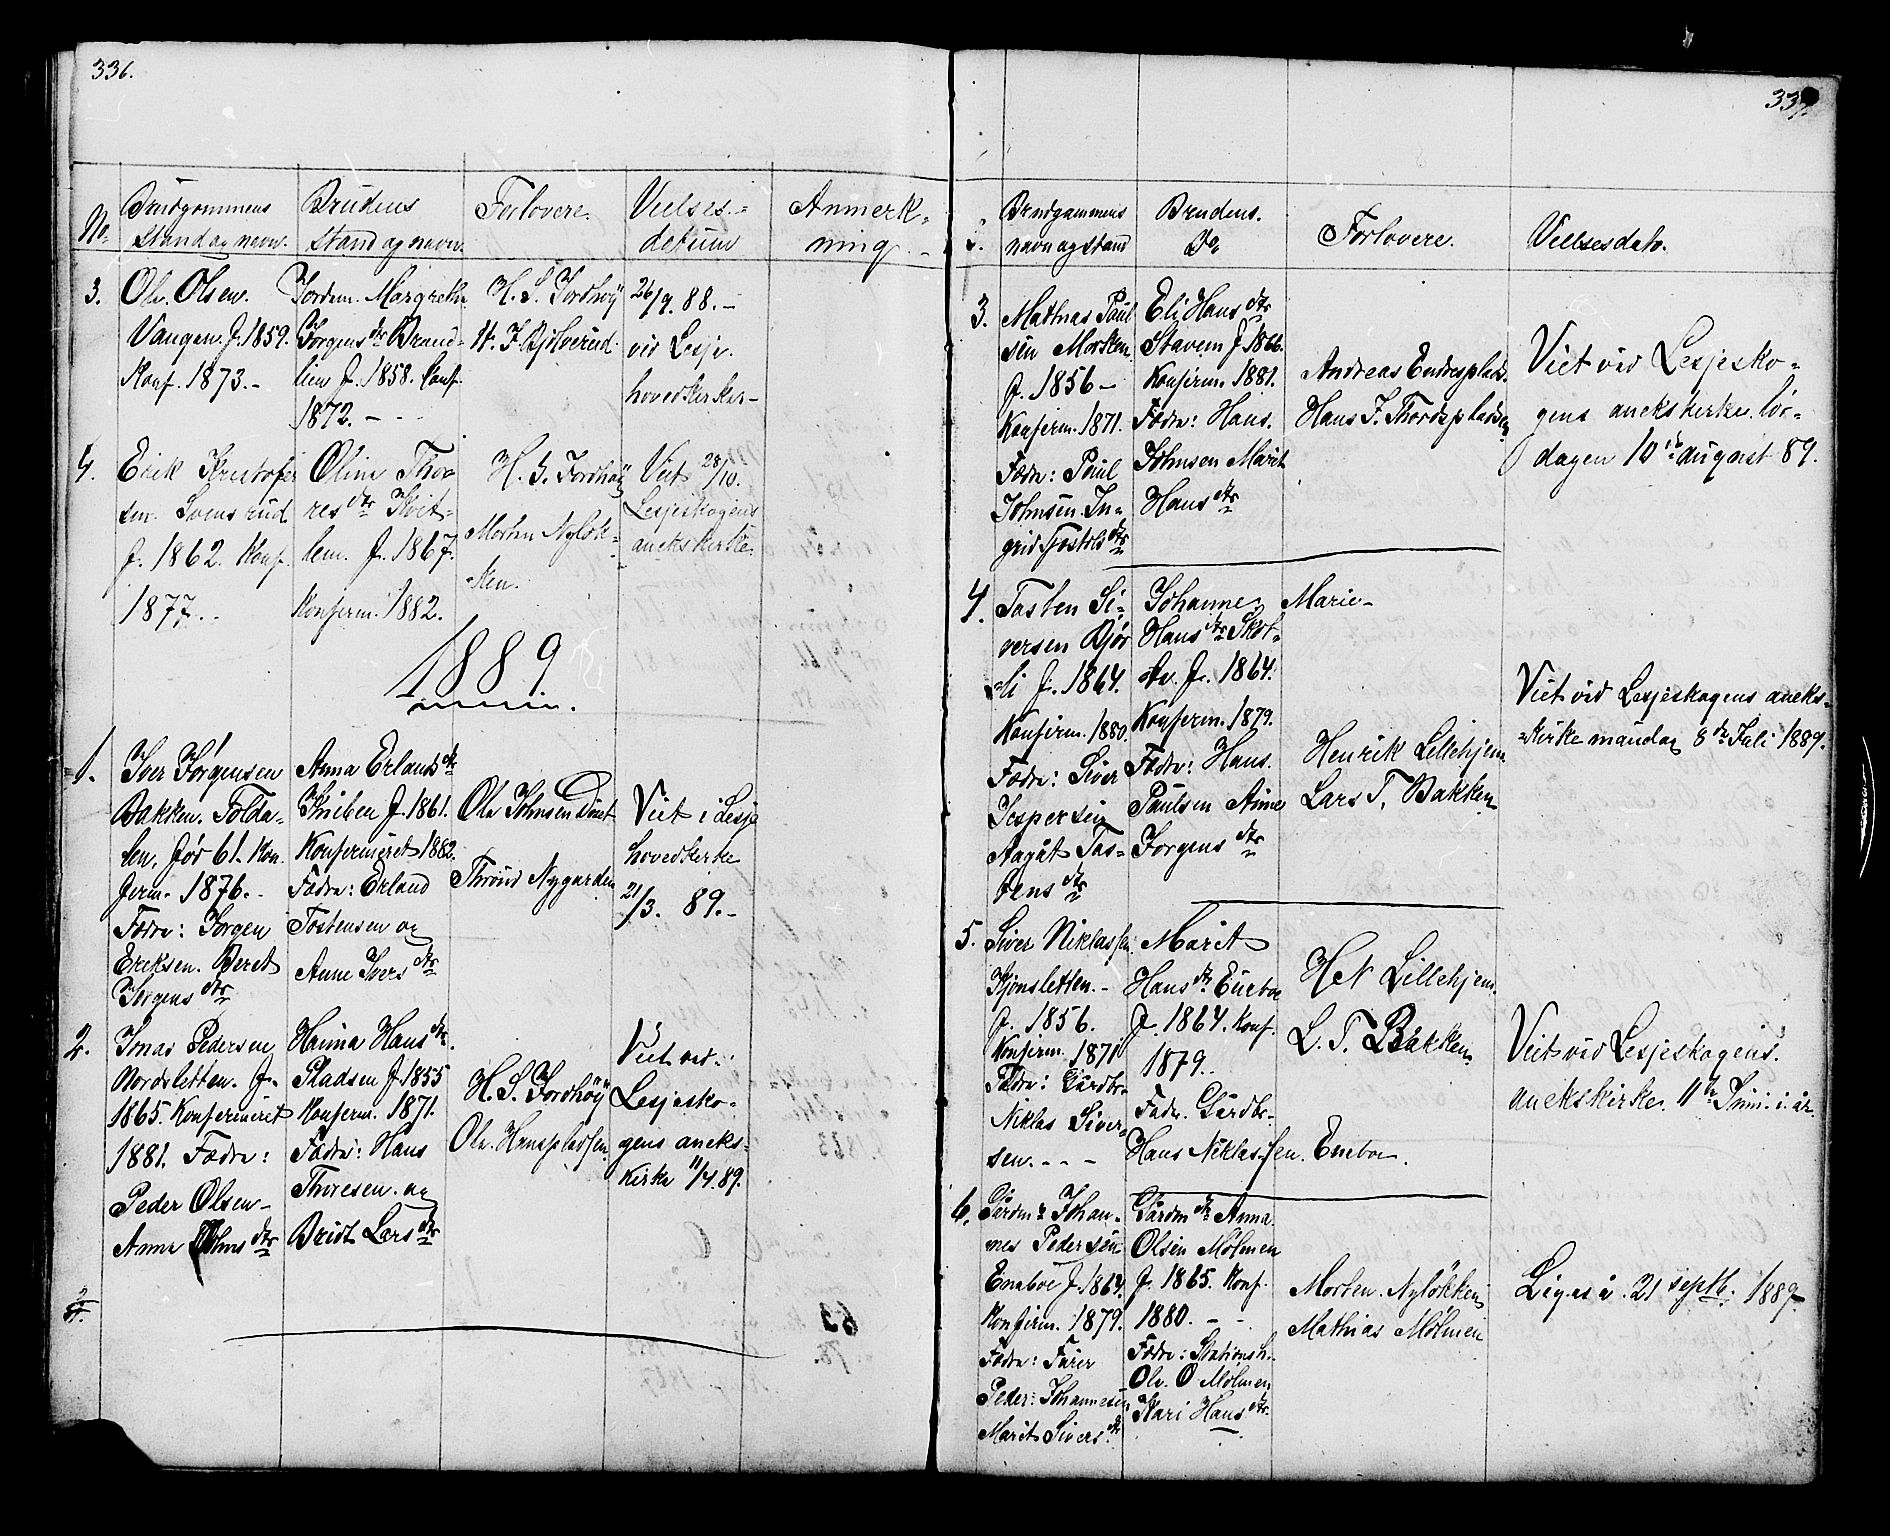 336.
No.
Brudgommens
stand og navn.
Brudens
stand og navn.
Forlovere.
Vielses-
datum
Anmerk-
ning
3.
Ole Olsen
Vangen f. 1859.
Konf. 1873.-
Jordem. Margrethe
Jørgens dtr Brand-
lien f. 1858. Konf.
1872. - -
H. S. Jordhøy
H. J. Bjølverud
26/9. 88.-
vid Lesje
hovedkirke-
4.
Erik Kristofer
sen Svensrud
f. 1862. Konf.
1877.-
Oline Tho
res dtr Kvit-
lem. f. 1867.
Konferm. 1882.
H. S. Jordhøy
Morten Nyløk-
ken.
Viet 28/10.
Lesjeskogens
anekskirke.
1889.
1.
Iver Jørgensen
Bakken. Folda-
len, før 61. Kon
ferm. 1876.-
Fædre: Jørgen
Ereksen. Beret
Jørgens dtr
Anna Erlands dtr
Kniben f. 1861.
Konfermeret 1882.
Fædre: Erland
Tostensen og
Anne Ivers dtr
Ole Johnsen
Thrond Nygarden
Viet i Lesje
hovedkirke
21/3. 89.-
2.
Jonas Pedersen
Nordsletten. f.
1865. Konfermeret
1881. Fædre:
Peder Olsen-
Anne Johns dtr
Hanna Hans dtr.
Pladsen f. 1855
Konferm. 1871.
Fædre: Hans
Thoresen og
Bridt Lars dtr
H. S. Jordhøy
Ole Hansplassen
Viet ved
Lesjesko-
gens aneks-
kirke 11/4. 89.
337.
Brudgommens
navn og stand
Brudens
Do
Forlovere.
Vielsesdato.
3.
Mathias Paul
sen Morken
f. 1856-
Konferm. 1871.
Fædre: Paul
Johnsen. In-
grid Jostels dtr
Eli Hans dtr
Stavem f. 1866.
Konferm. 1881.
Fædre: Hans.
Johnsen Marit
Hans dtr
Andreas Endresplads.
Hans J. Thordspladsen
Viet vid Lesjesko-
gens anekskirke lør-
dagen 10 de august 89.
4.
Tosten Si-
versen Bjør
li f. 1864.
Konferm. 1880.
Fædre: Siver
Jespersen
Aagåt Tos-
tens dtr
Johanne Marie-
Hans dtr Skot-
te. f. 1864.
Konferm. 1879.
Fædre: Hans.
Paulsen Anne
Jørgens dtr
Henrik Lillehjem
Lars T. Bakken
Viet vid Lesjeskogens aneks-
kirke mandag 8 de Juli 1889.
5.
Siver Niklassen
Kjønsletten.-
f. 1856.
Konferm. 1871
Fædre: Gårdbr.
Niklas Siver-
sen. - - -
Marit
Hans dtr Eneboe
f. 1864. Konf.
1879.
Fædr. Gårdbr.
Hans Niklassen. Eneboe.
H N Lillehjem.
L. T. Bakken
Viet vid Lesjeskogens.
anekskirke. 11 te Juni. i. år
6.
Gårdm: Johan-
nes Pedersen
Eneboe f. 1864.
Konferm. 1879.
Fædre: Fører
Peder: Johannesen
Marit Sivers dtr
Gårdm dtr Anna
Olsen Mølmen
f. 1865. Konf.
1880. - -
Fædre: Stationsh.
Ole. O Mølmen
Kari Hans dtr.
Morten. Nyløkken
Mathias Mølmen
Ligeså. 21 septb. 1889